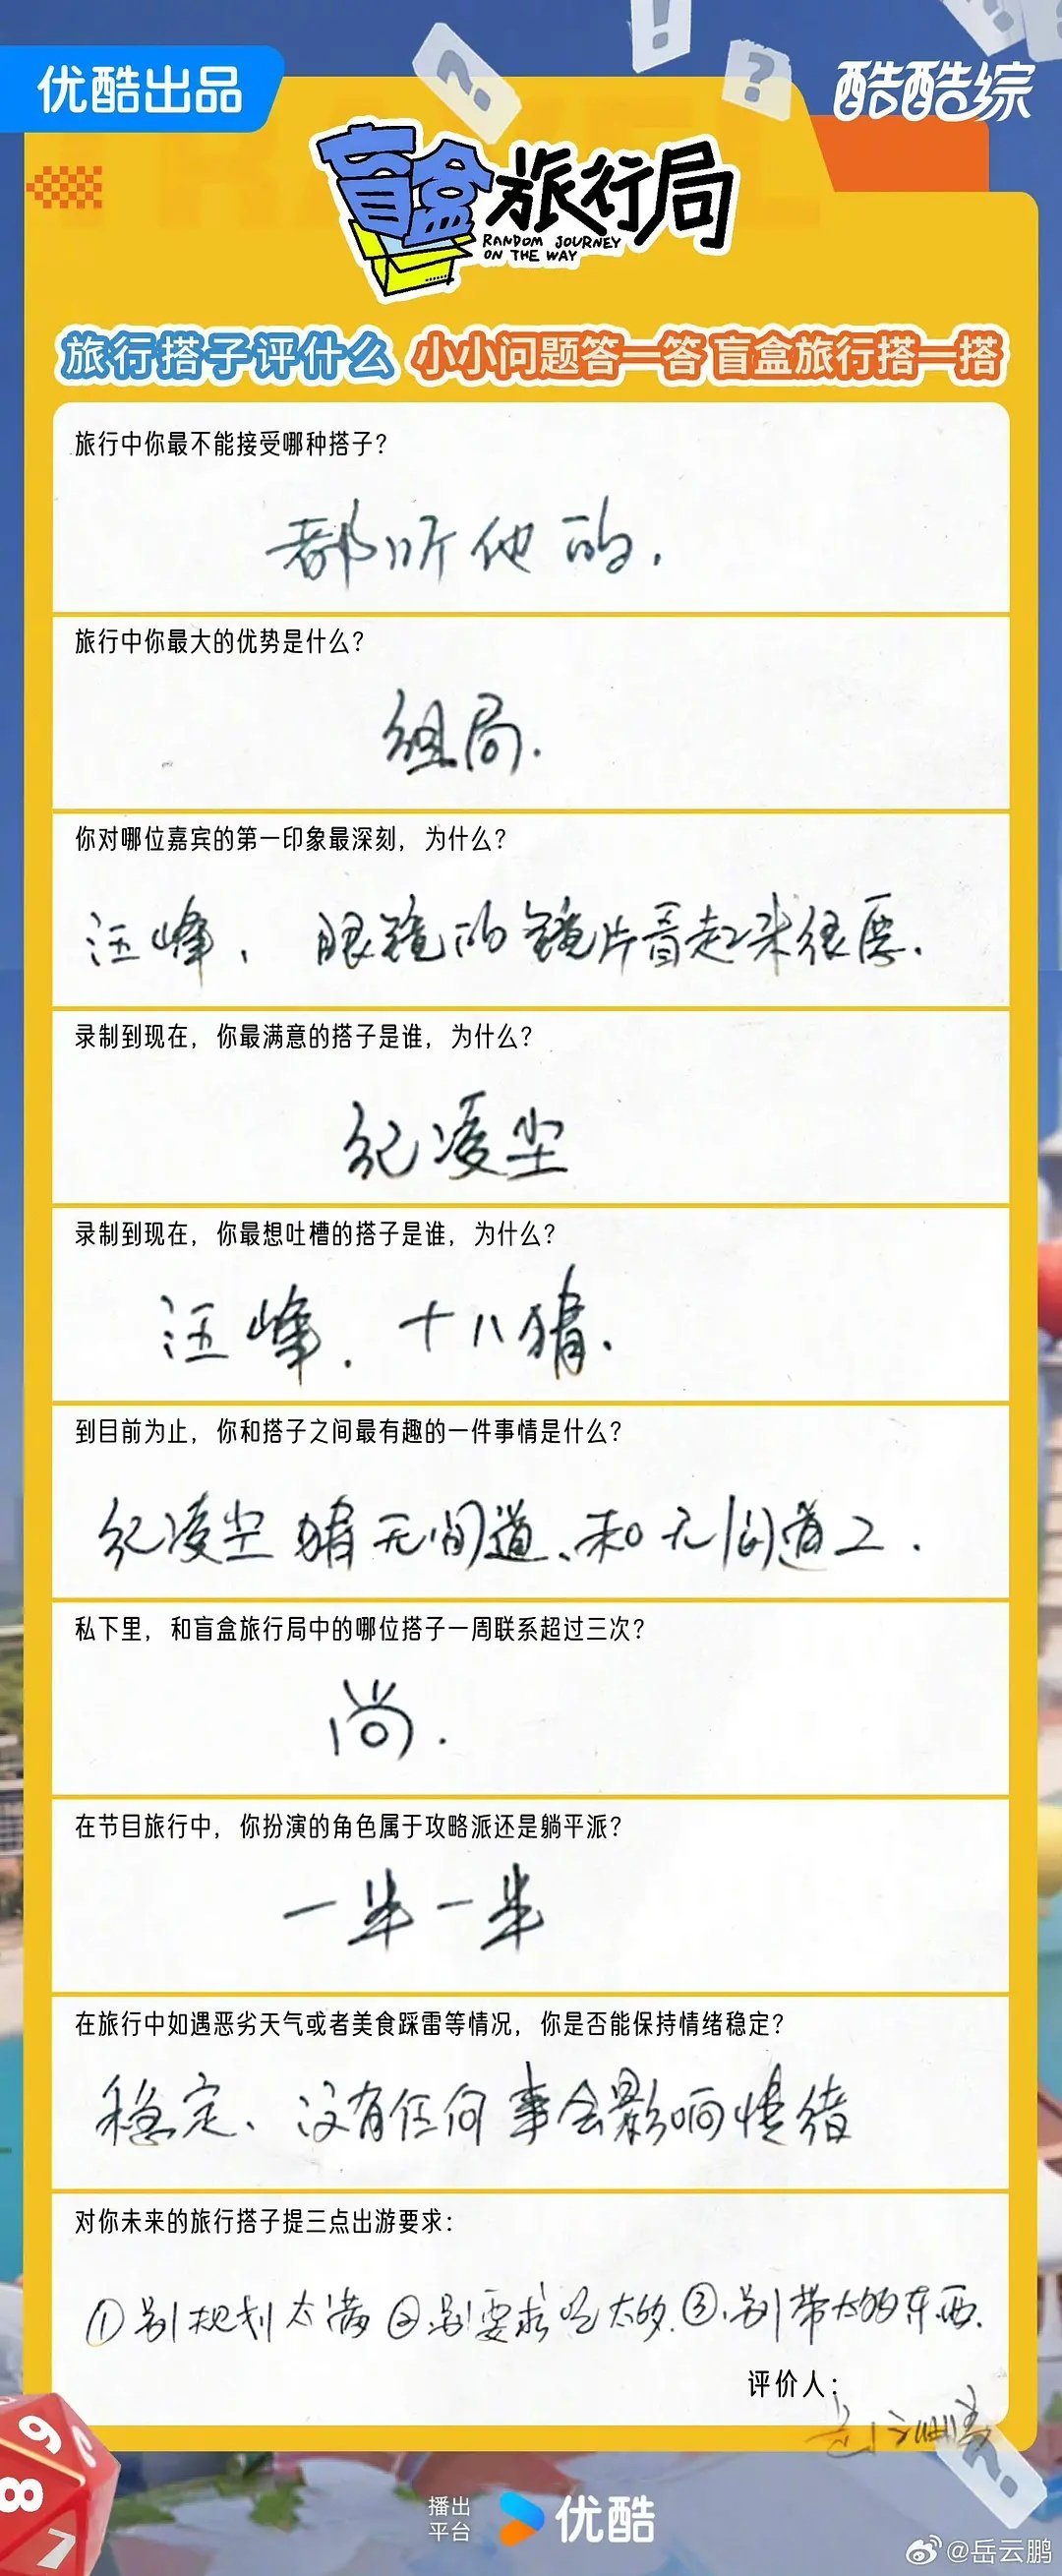 优酷出品
酷酷综
盲盒旅行局
RANDOM JOURNEY
ON THE WAY
旅行搭子评什么 小小问题答一答 盲盒旅行搭一搭
旅行中你最不能接受哪种搭子？
都听他的.
旅行中你最大的优势是什么？
组局.
你对哪位嘉宾的第一印象最深刻，为什么？
汪峰、眼镜的镜片看起来很厚.
录制到现在，你最满意的搭子是谁，为什么？
纪凌尘
录制到现在，你最想吐槽的搭子是谁，为什么？
汪峰. 十八猜.
到目前为止，你和搭子之间最有趣的一件事情是什么？
纪凌尘猜无间道、和无间道2.
私下里，和盲盒旅行局中的哪位搭子一周联系超过三次？
尚.
在节目旅行中，你扮演的角色属于攻略派还是躺平派？
一半一半
在旅行中如遇恶劣天气或者美食踩雷等情况，你是否能保持情绪稳定？
稳定、没有任何事会影响情绪
对你未来的旅行搭子提三点出游要求：
①别规划太满②别要求吃太多.③.别带太多东西.
评价人：
岳云鹏
9
8
7
播出
平台
优酷
@岳云鹏